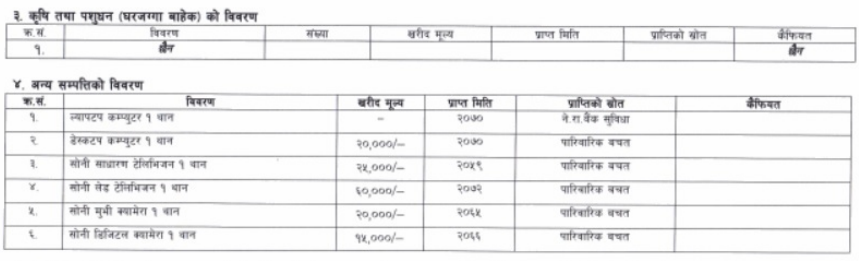 ३. कृषि तथा पशुधन (घरजग्गा बाहेक) को विवरण
क्र.सं. विवरण संख्या खरीद मूल्य प्राप्त मिति प्राप्तिको स्रोत कैफियत
१. छैन छैन
४. अन्य सम्पत्तिको विवरण
क्र.सं. विवरण खरीद मूल्य प्राप्त मिति प्राप्तिको स्रोत कैफियत
१. ल्यापटप कम्प्युटर १ थान – २०७० ने.रा.बैंक सुविधा
२. डेस्कटप कम्प्युटर १ थान २०,०००/– २०७० पारिवारिक बचत
३. सोनी साधारण टेलिभिजन १ थान २५,०००/– २०५९ पारिवारिक बचत
४. सोनी लेड टेलिभिजन १ थान ६०,०००/– २०७२ पारिवारिक बचत
५. सोनी मुभी क्यामेरा १ थान २०,०००/– २०६५ पारिवारिक बचत
६. सोनी डिजिटल क्यामेरा १ थान १५,०००/– २०६६ पारिवारिक बचत